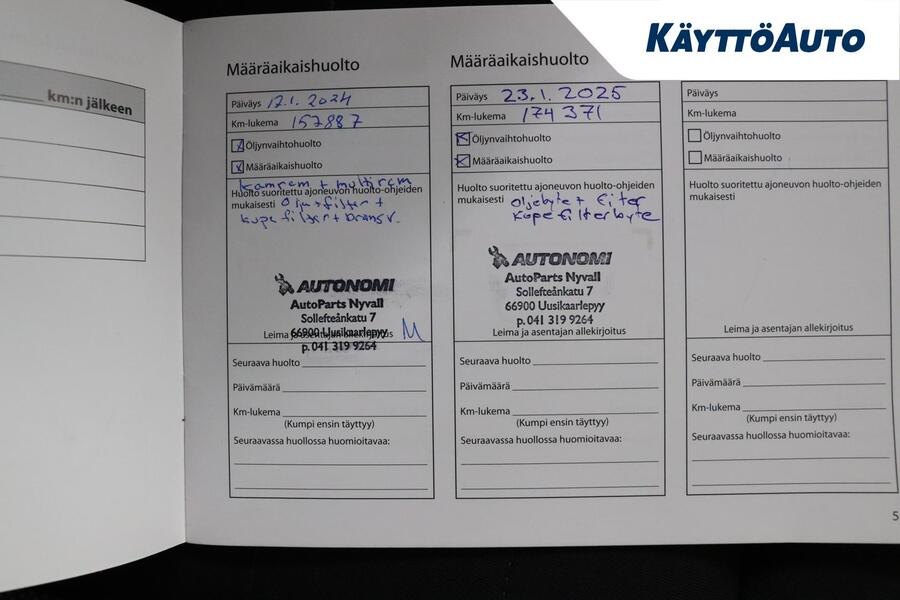 KÄYTTÖAUTO
km:n jälkeen
Määräaikaishuolto
Päiväys 17.1.2024
Km-lukema 157887
Öljynvaihtohuolto
Määräaikaishuolto
kamrem + multirem
Huolto suoritettu ajoneuvon huolto-ohjeiden
mukaisesti Olju+filter +
kupe filter + bränsv.
AUTONOMI
AutoParts Nyvall
Sollefteånkatu 7
66900 Uusikaarlepyy
Leima ja asentajan allekirjoitus
p. 041 319 9264
Seuraava huolto
Päivämäärä
Km-lukema
(Kumpi ensin täyttyy)
Seuraavassa huollossa huomioitavaa:
Määräaikaishuolto
Päiväys 23.1.2025
Km-lukema 174 371
Öljynvaihtohuolto
Määräaikaishuolto
Huolto suoritettu ajoneuvon huolto-ohjeiden
mukaisesti oljebyte + filter
Kupefilterbyte
AUTONOMI
AutoParts Nyvall
Sollefteånkatu 7
66900 Uusikaarlepyy
p. 041 319 9264
Leima ja asentajan allekirjoitus
Seuraava huolto
Päivämäärä
Km-lukema
(Kumpi ensin täyttyy)
Seuraavassa huollossa huomioitavaa:
Päiväys
Km-lukema
Öljynvaihtohuolto
Määräaikaishuolto
Huolto suoritettu ajoneuvon huolto-ohjeiden
mukaisesti
Leima ja asentajan allekirjoitus
Seuraava huolto
Päivämäärä
Km-lukema
(Kumpi ensin täyttyy)
Seuraavassa huollossa huomioitavaa:
5